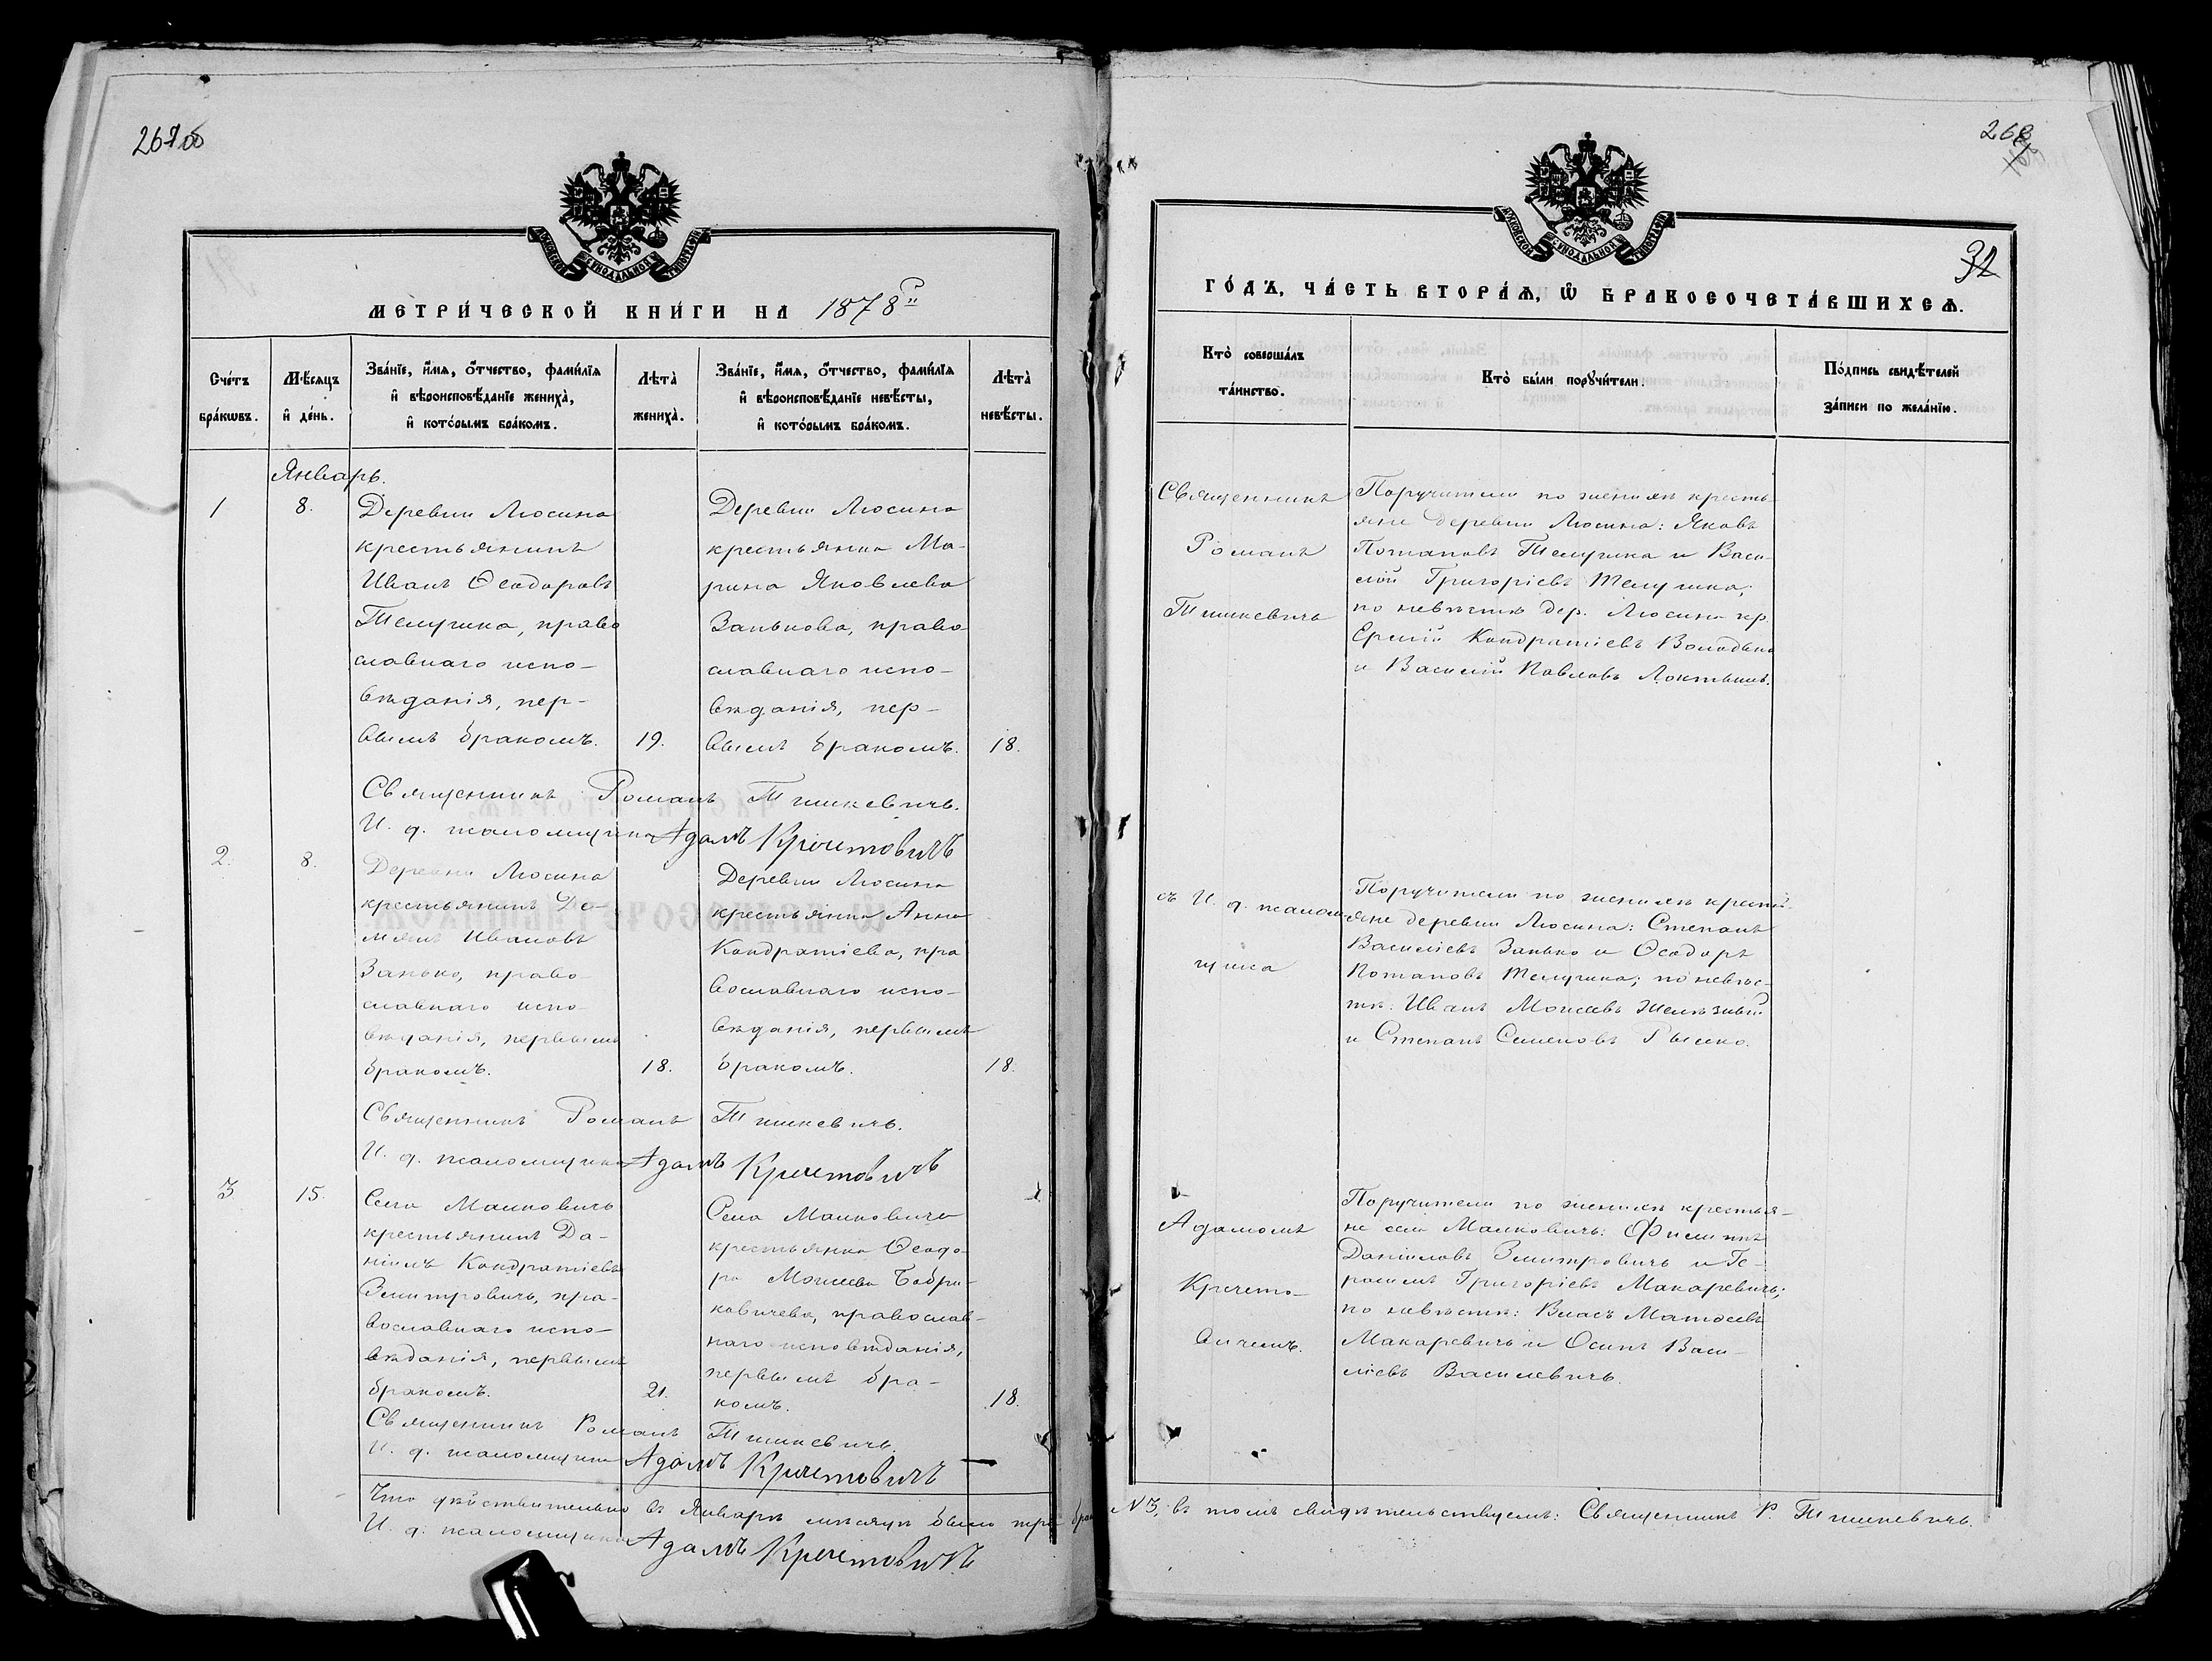 267
268
32
МЕТРИ́ЧЕСКОЙ КНИ́ГИ НА 1878 г.
Сче́тъ бра́кωвъ.
Мѣ́сяцъ и҆ де́нь.
Зва́нїе, и҆́мѧ, ѻ҆́тчество, фами́лїѧ
и҆ вѣроисповѣ́данїе жениха̀,
и҆ кото́рымъ бра́комъ.
Лѣта̀ жениха̀.
Зва́нїе, и҆́мѧ, ѻ҆́тчество, фами́лїѧ
и҆ вѣроисповѣ́данїе невѣ́сты,
и҆ кото́рымъ бра́комъ.
Лѣта̀ невѣ́сты.
Январь.
1
8.
Деревни Люсина
крестьянинъ
Иванъ Ѳеодоровъ
Телушка, право
славнаго испо-
вѣданія, пер-
вымъ бракомъ.
19.
Деревни Люсина
крестьянка Ма-
рина Яковлева
Занькова, право
славнаго испо-
вѣданія, пер-
вымъ бракомъ.
18.
Священникъ Романъ Тишкевичъ.
И. д. псаломщика Адамъ Кречетовичъ
2.
8.
Деревни Люсина
крестьянинъ До-
мянъ Ивановъ
Занько, право-
славнаго испо-
вѣданія, первымъ
бракомъ.
18.
Деревни Люсина
крестьянка Анна
Кондратіева, пра
вославнаго испо-
вѣданія, первымъ
бракомъ.
18.
Священникъ Романъ Тишкевичъ.
И. д. псаломщика Адамъ Кречетовичъ
3
15.
Села Малковичъ
крестьянинъ Да-
ніилъ Кондратіевъ
Змитровичъ, пра-
вославнаго испо-
вѣданія, первымъ
бракомъ.
21.
Села Малковичъ
крестьянка Ѳеодо-
ра Моисеева Бобри-
ковичева, православ-
наго исповѣданія,
первымъ бра-
комъ.
18.
Священникъ Романъ Тишкевичъ.
И. д. псаломщика Адамъ Кречетовичъ
Что дѣйствительно въ Январѣ мѣсяцѣ было три брака №3, въ томъ свидѣтельствуемъ: Священникъ Р. Тишкевичъ.
И. д. псаломщика Адамъ Кречетовичъ
ГО́ДЪ, ЧА́СТЬ ВТОРА́Ѧ, Ѽ БРАКОСОЧЕТА́ВШИХСѦ.
Кто̀ соверша́лъ
та́инство.
Кто̀ бы́ли порꙋчи́тели.
По́дпись свидѣ́телей
за́писи по жела́нїю.
Священникъ
Романъ
Тишкевичъ
Поручители по женихѣ кресть-
яне деревни Люсина: Яковъ
Потаповъ Телушка и Васи-
лій Григоріевъ Телушка;
по невѣстѣ дер. Люсина кр.
Ермій Кондратіевъ Володько
и Василій Павловъ Локтышъ.
съ И. д. псалом-
щика
Поручители по женихѣ кресть-
яне деревни Люсина: Степанъ
Василіевъ Занько и Ѳеодоръ
Потаповъ Телушка; по невѣс-
тѣ: Иванъ Моисеевъ Желѣзный
и Степанъ Семеновъ Гышко.
Адамомъ
Кречето-
вичемъ.
Поручители по женихѣ крестья-
не села Малковичъ: Филиппъ
Даніиловъ Змитровичъ и Ге-
расимъ Григоріевъ Макаревичъ;
по невѣстѣ: Власъ Матѳеевъ
Макаревичъ и Осипъ Васи-
ліевъ Василевичъ.